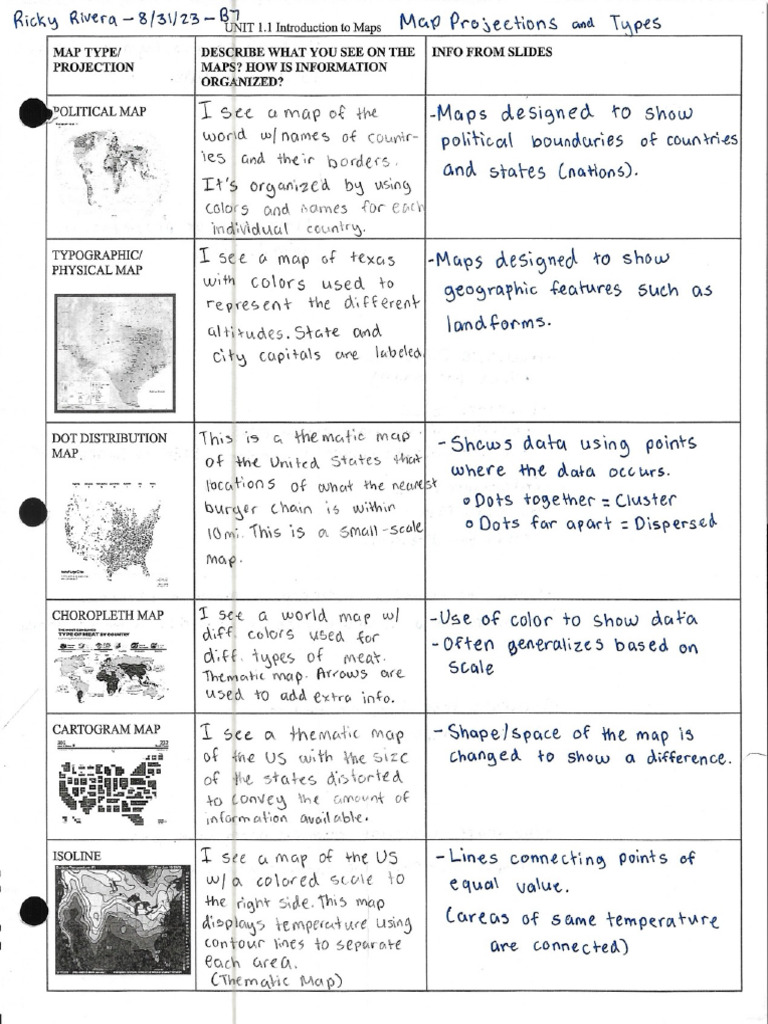 Ricky Rivera - 8/31/23 - B7
UNIT 1.1 Introduction to Maps
Map Projections and Types
MAP TYPE/
PROJECTION
DESCRIBE WHAT YOU SEE ON THE
MAPS? HOW IS INFORMATION
ORGANIZED?
INFO FROM SLIDES
POLITICAL MAP
I see a map of the
world w/names of countr-
ies and their borders.
It's organized by using
colors and names for each
individual country.
-Maps designed to show
political boundaries of countries
and states (nations).
TYPOGRAPHIC/
PHYSICAL MAP
I see a map of texas
with colors used to
represent the different
altitudes. State and
city capitals are labeled.
-Maps designed to show
geographic features such as
landforms.
DOT DISTRIBUTION
MAP
This is a thematic map
of the United States that
locations of what the nearest
burger chain is within
10mi. This is a small-scale
map.
- Shows data using points
where the data occurs.
Dots together = Cluster
Dots far apart = Dispersed
CHOROPLETH MAP
TYPE OF MEAT BY COUNTRY
I see a world map w/
diff. colors used for
diff. types of meat.
Thematic map. Arrows are
used to add extra info.
-Use of color to show data
-Often generalizes based on
scale
CARTOGRAM MAP
I see a thematic map
of the US with the size
of the states distorted
to convey the amount of
information available.
- Shape/space of the map is
changed to show a difference.
ISOLINE
I see a map of the US
w/a colored scale to
the right side. This map
displays temperature using
contour lines to separate
each area.
(Thematic Map)
-Lines connecting points of
equal value.
(areas of same temperature
are connected)